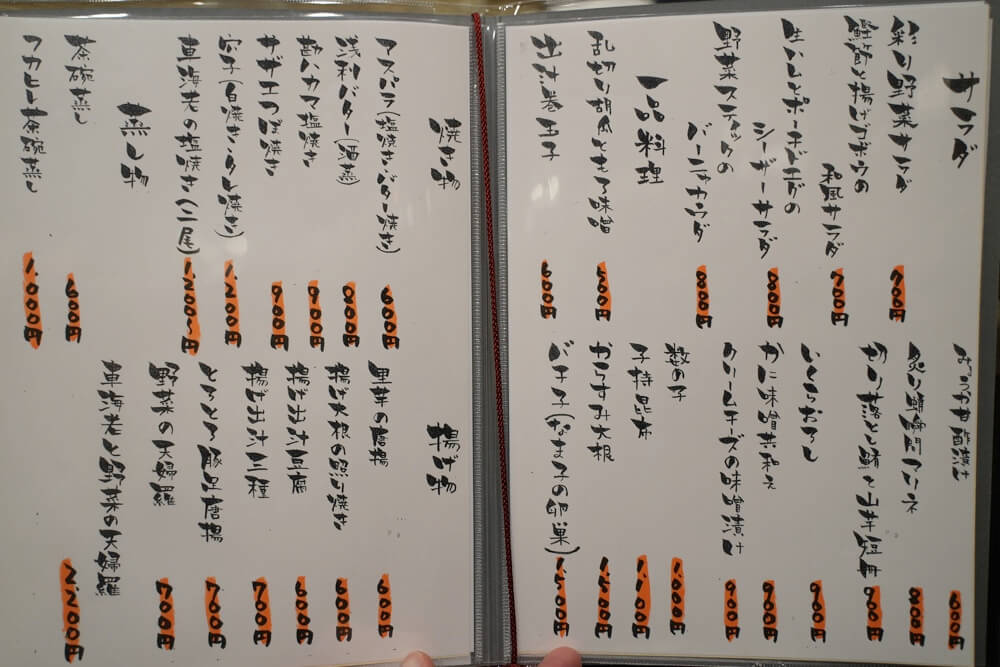 サラダ
彩り野菜サラダ
700円
鰹節と揚げゴボウの
和風サラダ
700円
生ハムとポーチドエッグの
シーザーサラダ
800円
野菜スティックの
バーニャカウダ
800円
一品料理
乱切り胡瓜ともろ味噌
500円
出汁巻玉子
600円
甘酢漬け
600円
炙り
マリネ
800円
切り落とし鮪と山芋短冊
900円
いくらおろし
900円
かに味噌共和え
900円
クリームチーズの味噌漬け
900円
数の子
1,000円
子持昆布
1,100円
からすみ大根
1,500円
バチ子(なま子の卵巣)
1,500円
焼き物
アスパラ(塩焼き・バター焼き)
600円
浅利バター(酒蒸)
800円
勘八カマ塩焼き
900円
サザエつぼ焼き
900円
穴子(白焼き・タレ焼き)
1,200円
車海老の塩焼き(二尾)
1,200〜円
蒸し物
茶碗蒸し
600円
フカヒレ茶碗蒸し
1,000円
揚げ物
里芋の唐揚
600円
揚げ大根の照り焼き
600円
揚げ出汁豆腐
600円
揚げ出汁三種
700円
とろとろ豚足唐揚
700円
野菜の天婦羅
700円
車海老と野菜の天婦羅
2,200円